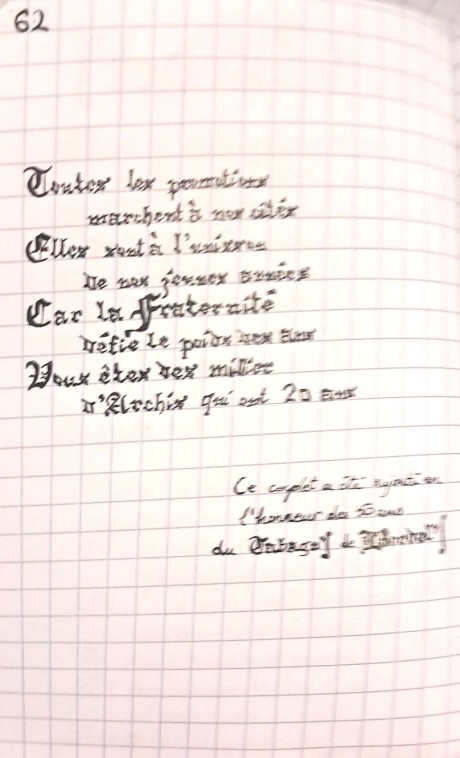 62
Toutes les promotions
marchent à nos côtés
Elles sont à l'unisson
De nos jeunes années
Car la Fraternité
Défie le poids des ans
Vous êtes des millier
D'Archis qui ont 20 ans
Ce couplet a été rajouté en
l'honneur des 50 ans
du Tabagn's de